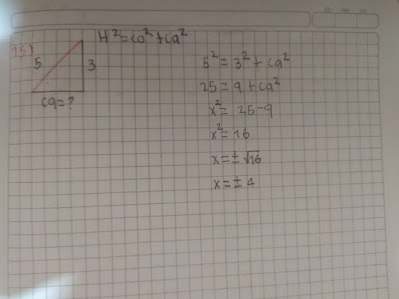 15)
H² = co² + ca²
5
3
ca = ?
5² = 3² + ca²
25 = 9 + ca²
x² = 25 - 9
x² = 16
x = ± √16
x = ± 4